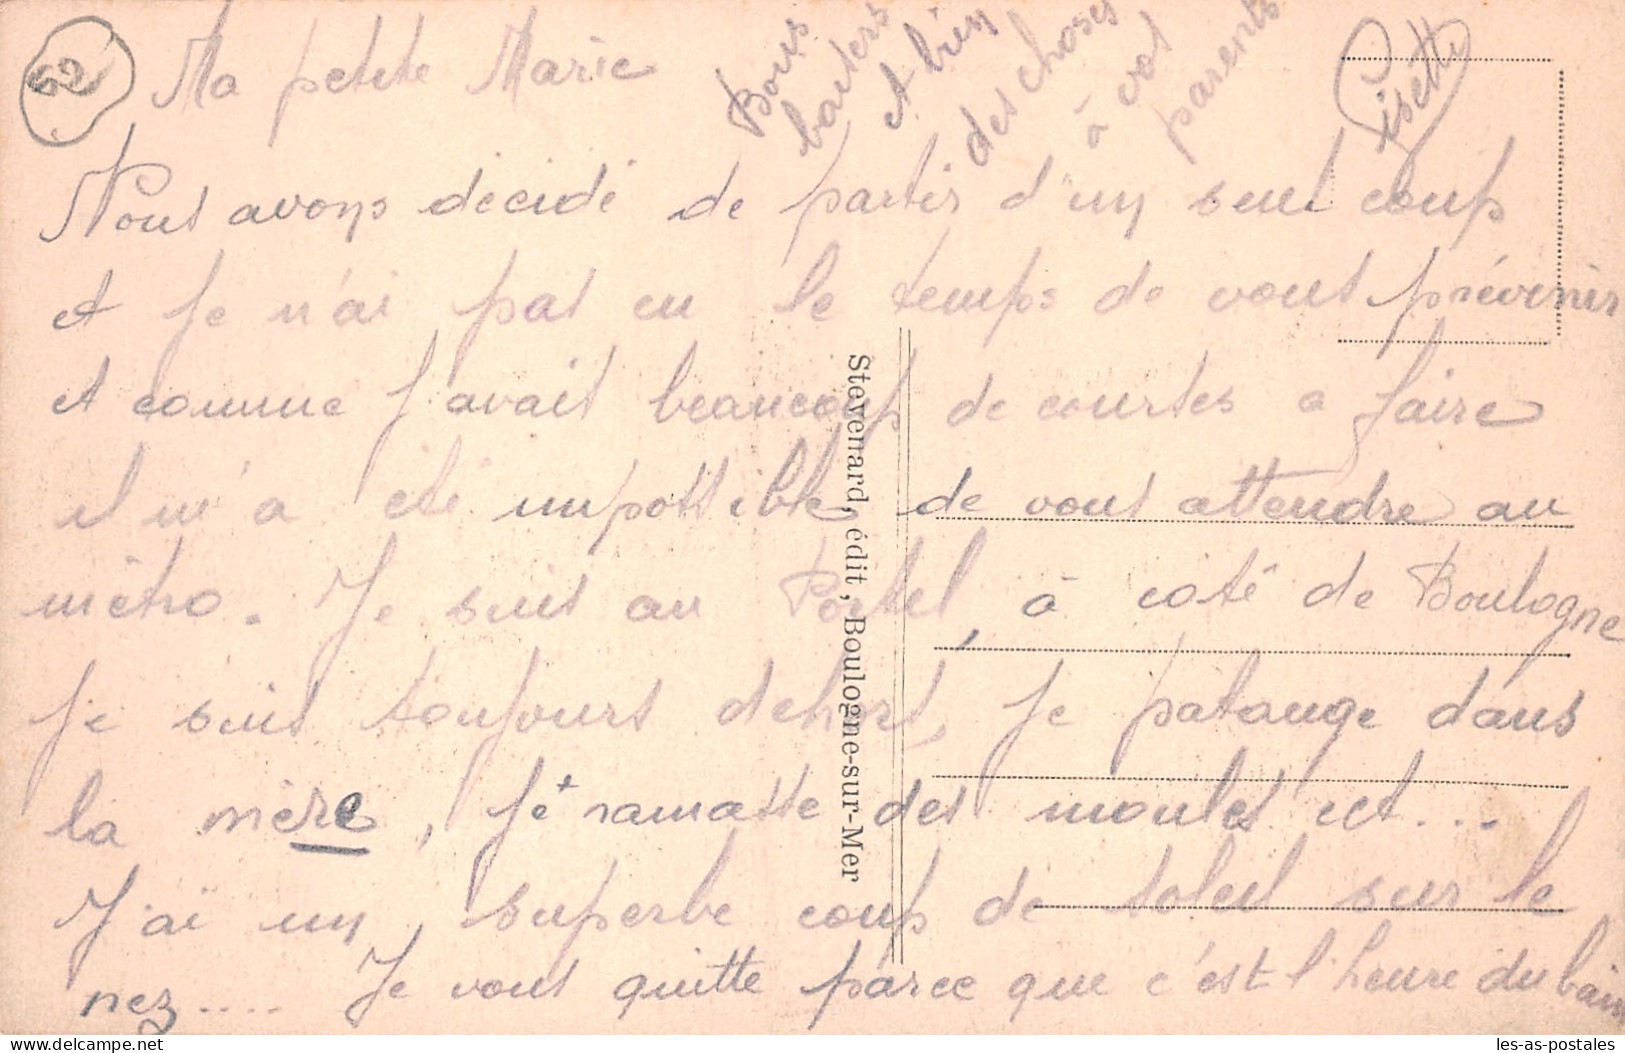 52
Ma petite Marie
Nous avons décidé de partir d'un seul coup
et je n'ai pas eu le temps de vous prévenir
et comme j'avait beaucoup de courses a faire
il m'a été impossible, de vous attendre au
métro. Je suis au Portel, à coté de Boulogne
je suis toujours dehors, je patauge dans
la mère, je ramasse des moules ect...
J'ai un superbe coup de soleil sur le
nez.... Je vous quitte parce que c'est l'heure du bain
Bons
baisers
et bien
des choses
à vos
parents
Lisette
Stevenard, édit, Boulogne-sur-Mer
les-as-postales
delcampe.net